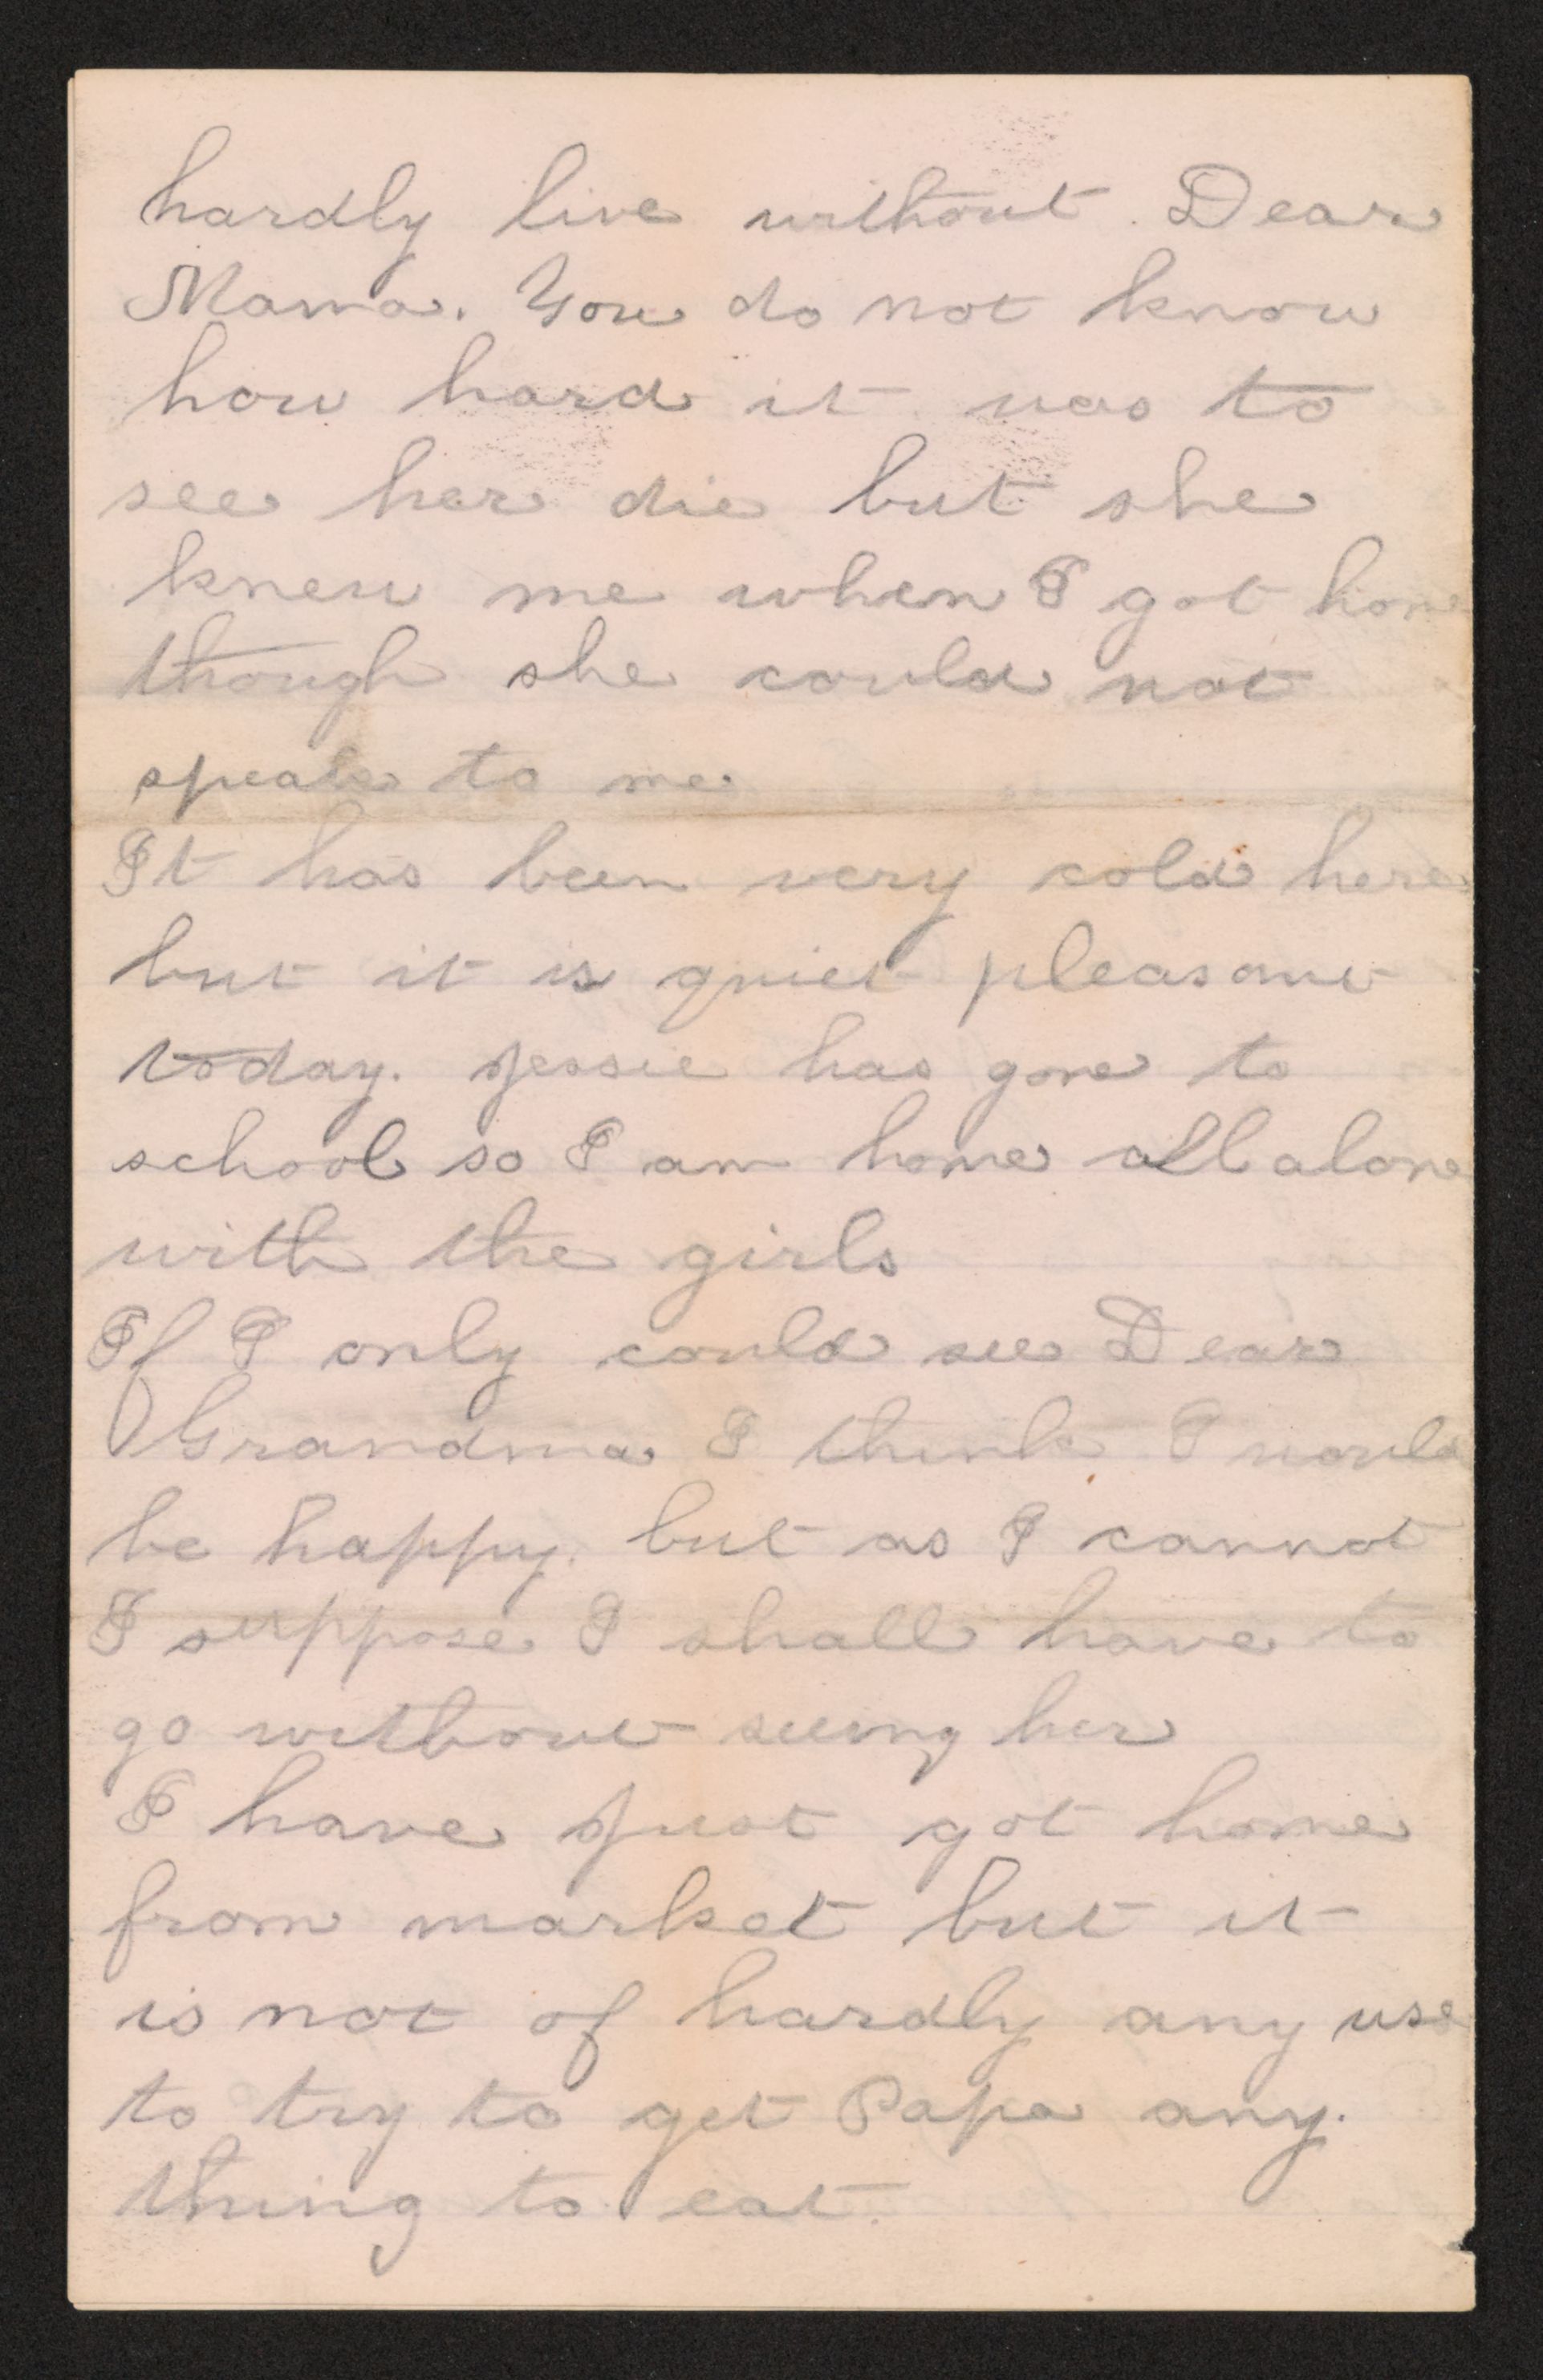 hardly live without. Dear
Mama. You do not know
how hard it was to
see her die but she
knew me when I got home
though she could not
speak to me.
It has been very cold here
but it is quiet pleasant
today. Jessie has gone to
school so I am home all alone
with the girls
If I only could see Dear
Grandma I think I would
be happy. but as I cannot
I suppose I shall have to
go without seeing her
I have just got home
from market but it
is not of hardly any use
to try to get Papa any.
thing to eat.